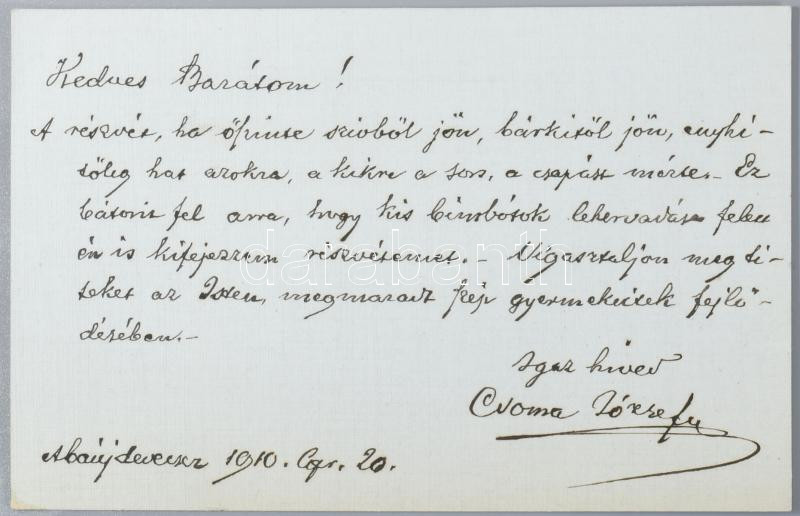 Kedves Barátom!
A részvét, ha őszinte szivből jön, bárkitől jön, enyhi-
tőleg hat azokra, a kikre a sors, a csapást mérte. - Ez
bátorit fel arra, hogy kis bimbótok lehervadása felett
én is kifejezzem részvétemet. - Vigasztaljon meg ti-
teket az Isten, megmaradt szép gyermekeitek fejlő-
désében. -
Igaz hived
Csoma József
Abaújdevecser 1910. Apr. 20.
darabanth